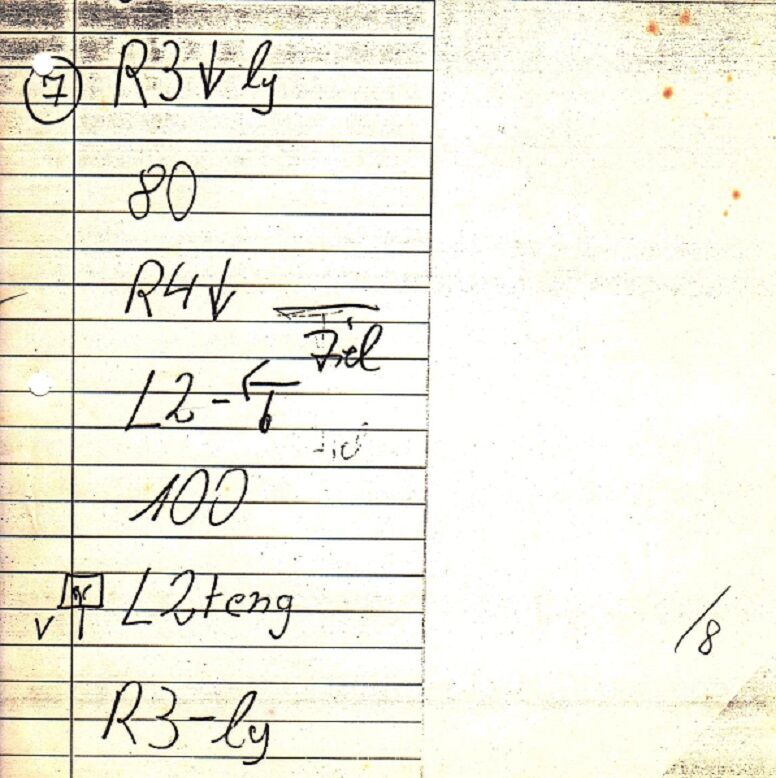 7 R3↓ ly
80
R4↓
Ziel
L2-
100
L2+eng
R3-ly
/8